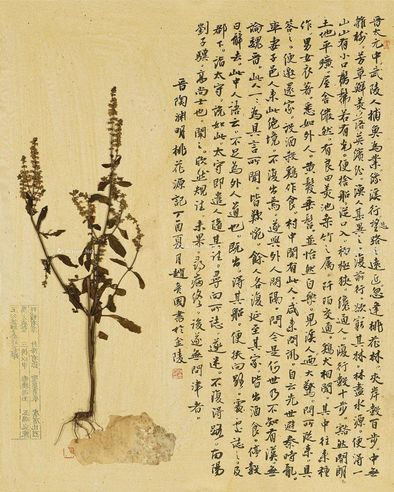 晋太元中武陵人捕魚為業緣溪行忘路之遠近忽逢桃花林夹岸數百步中無
雜樹芳草鮮美落英繽紛漁人甚異之復前行欲窮其林林盡水源便得一
山山有小口髣髴若有光便捨船從口入初極狹纔通人復行數十步豁然開朗
土地平曠屋舍儼然有良田美池桑竹之屬阡陌交通鷄犬相聞其中往來種
作男女衣著悉如外人黄髮垂髫並怡然自樂見漁人乃大驚問所從來具
答之便邀還家設酒殺鷄作食村中聞有此人咸來問訊自云先世避秦時亂
率妻子邑人來此絶境不復出焉遂與外人間隔問今是何世乃不知有漢無
論魏晋此人一一為具言所聞皆歎惋餘人各復延至其家皆出酒食停數
日辭去此中人語云不足為外人道也既出得其船便扶向路處處誌之及
郡下詣太守說如此太守即遣人隨其往尋向所誌遂迷不復得路南陽
劉子驥高尚士也聞之欣然規往未果尋病終後遂無問津者
晋陶淵明桃花源記丁酉夏月趙國書於金陵